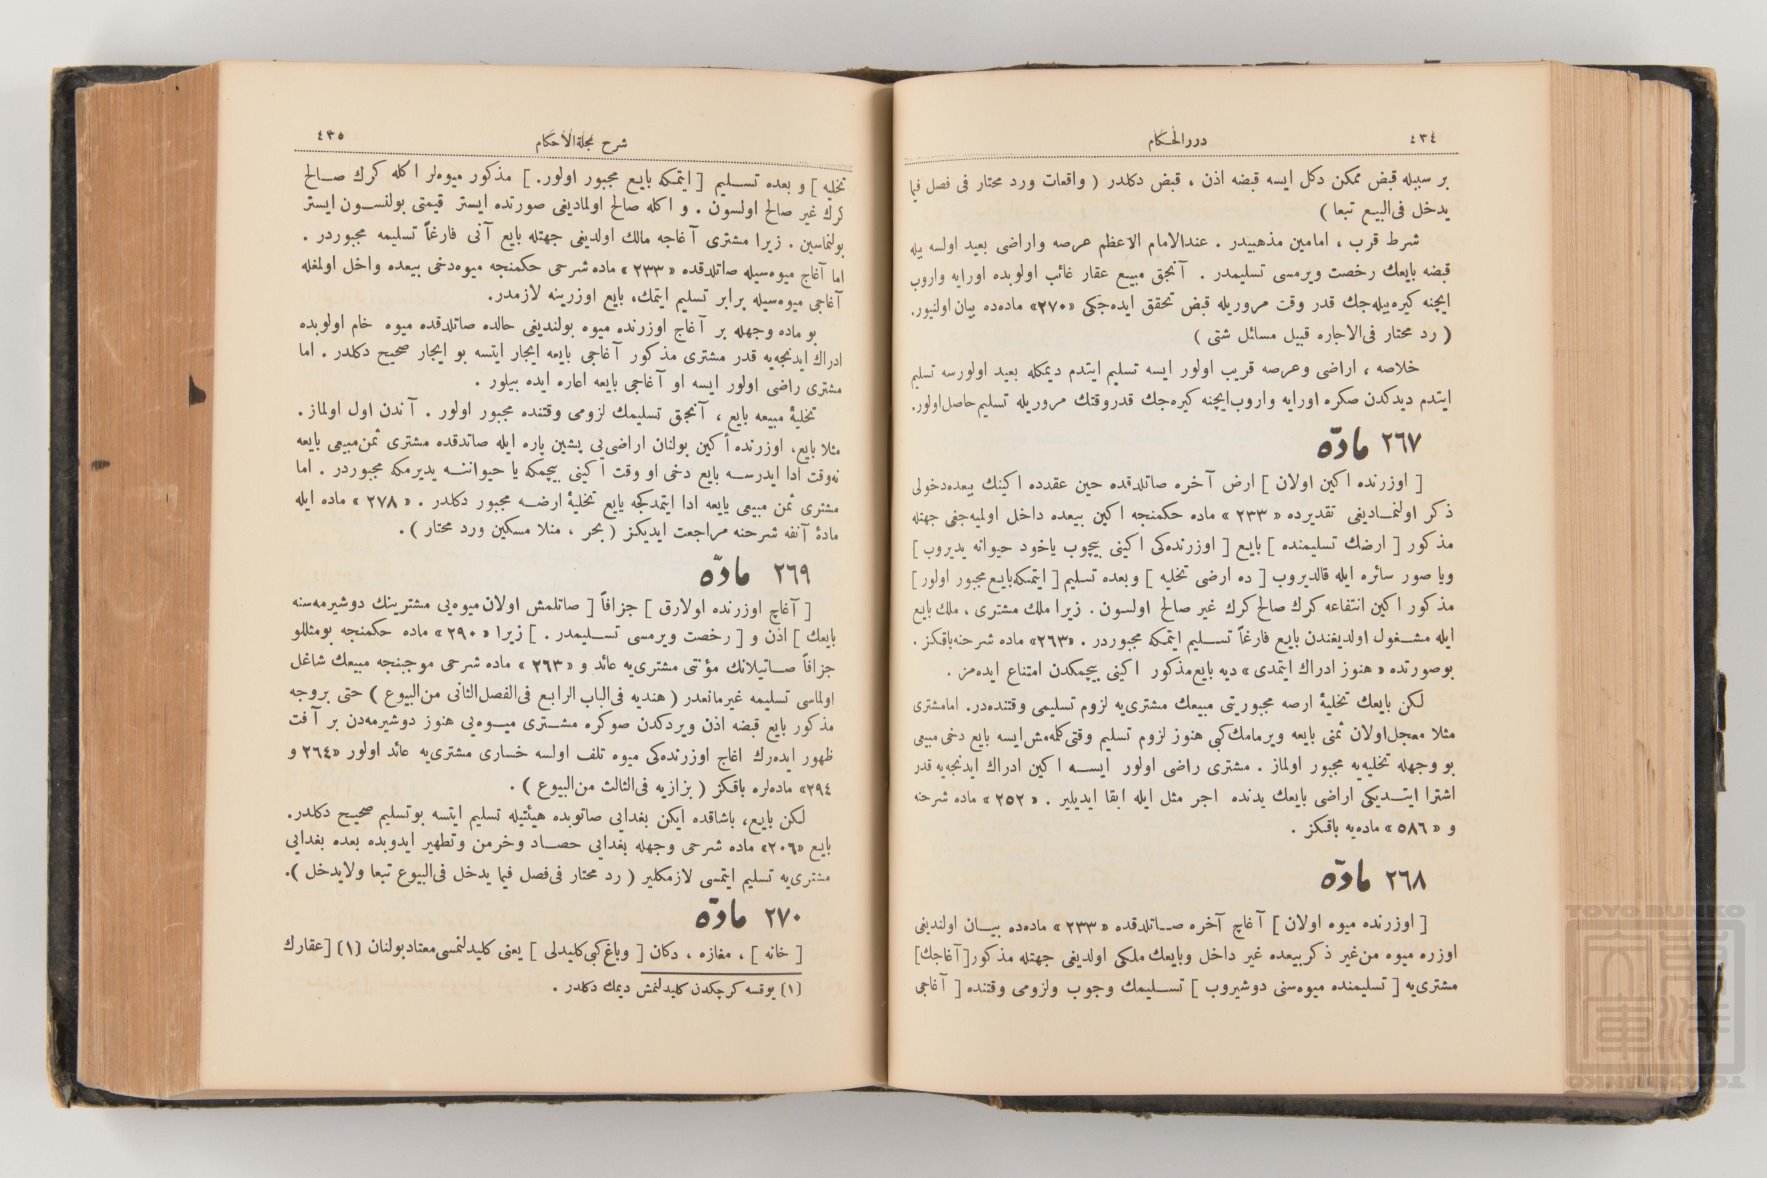 ٤٣٤
دررالحكام
بر سببله قبض ممكن دكل ايسه قبضه اذن ، قبض دكلدر ( واقعات ورد محتار فى فصل فيما
يدخل فى‌البيع تبعا )
شرط قرب ، امامين مذهبيدر . عندالامام الاعظم عرصه واراضى بعيد اولسه بيله
قبضه بايعك رخصت ويرمسى تسليمدر . آنجق مبيع عقار غائب اولوبده اورايه واروب
ايچنه كيره‌بيله‌جك قدر وقت مروريله قبض تحقق ايده‌جكى «٢٧٠» ماده‌ده بيان اولنيور.
( رد محتار فى‌الاجاره قبيل مسائل شتى )
خلاصه ، اراضى وعرصه قريب اولور ايسه تسليم ايتدم ديمكله بعيد اولورسه تسليم
ايتدم ديدكدن صكره اورايه واروب‌ايچنه كيره‌جك قدروقتك مروريله تسليم حاصل‌اولور.
٢٦٧ مادّه
[ اوزرنده اكين اولان ] ارض آخره صاتلدقده حين عقدده اكينك بيعده‌دخولى
ذكر اولنماديغى تقديرده « ٢٣٣ » ماده حكمنجه اكين بيعده داخل اولميه‌جغى جهتله
مذكور [ ارضك تسليمنده ] بايع [ اوزرنده‌كى اكينى بيچوب ياخود حيوانه يديروب ]
ويا صور سائره ايله قالديروب [ ده ارضى تخليه ] وبعده تسليم [ ايتمكه‌بايع مجبور اولور ]
مذكور اكين انتفاعه كرك صالح كرك غير صالح اولسون . زيرا ملك مشترى ، ملك بايع
ايله مشغول اولديغندن بايع فارغاً تسليم ايتمكه مجبوردر . «٢٦٣» ماده شرحنه‌باقكز .
بوصورتده « هنوز ادراك ايتمدى » ديه بايع‌مذكور اكينى بيچمكدن امتناع ايده‌مز .
لكن بايعك تخلية ارضه مجبوريتى مبيعك مشترى‌يه لزوم تسليمى وقتنده‌در. امامشترى
مثلا معجل‌اولان ثمنى بايعه ويرمامك‌كبى هنوز لزوم تسليم وقتى كلمه‌مش‌ايسه بايع دخى مبيعى
بو وجهله تخليه‌يه مجبور اولماز . مشترى راضى اولور ايسه اكين ادراك ايدنجه‌يه قدر
اشترا ايتديكى اراضى بايعك يدنده اجر مثل ايله ابقا ايديلير . « ٢٥٢ » ماده شرحنه
و « ٥٨٦ » ماده‌يه باقكز .
٢٦٨ مادّه
[ اوزرنده ميوه اولان ] آغاچ آخره صاتلدقده « ٢٣٣ » ماده‌ده بيان اولنديغى
اوزره ميوه من‌غير ذكر بيعده غير داخل وبايعك ملكى اولديغى جهتله مذكور[آغاجك]
مشترى‌يه [ تسليمنده ميوه‌سنى دوشيروب ] تسليمك وجوب ولزومى وقتنده [ آغاجى
٤٣٥
شرح مجلةالأحكام
تخليه ] و بعده تسليم [ ايتمكه بايع مجبور اولور. ] مذكور ميوه‌لر اكله كرك صالح
كرك غير صالح اولسون . و اكله صالح اولماديغى صورتده ايستر قيمتى بولنسون ايستر
بولنماسين . زيرا مشترى آغاجه مالك اولديغى جهتله بايع آنى فارغاً تسليمه مجبوردر .
اما آغاج ميوه‌سيله صاتلدقده « ٢٣٣ » ماده شرحى حكمنجه ميوه‌دخى بيعده داخل اولمغله
آغاجى ميوه‌سيله برابر تسليم ايتمك، بايع اوزرينه لازمدر.
بو ماده وجهله بر آغاج اوزرنده ميوه بولنديغى حالده صاتلدقده ميوه خام اولوبده
ادراك ايدنجه‌يه قدر مشترى مذكور آغاجى بايعه ايجار ايتسه بو ايجار صحيح دكلدر . اما
مشترى راضى اولور ايسه او آغاجى بايعه اعاره ايده بيلور .
تخلية مبيعه بايع ، آنجق تسليمك لزومى وقتنده مجبور اولور . آندن اول اولماز.
مثلا بايع، اوزرنده أكين بولنان اراضى‌يى پشين پاره ايله صاتدقده مشترى ثمن‌مبيعى بايعه
نه‌وقت ادا ايدرسه بايع دخى او وقت اكينى بيچمكه يا حيواننه يديرمكه مجبوردر . اما
مشترى ثمن مبيعى بايعه ادا ايتمدكجه بايع تخلية ارضه مجبور دكلدر . « ٢٧٨ » ماده ايله
مادة آنفه شرحنه مراجعت ايديكز ( بحر ، منلا مسكين ورد محتار ) .
٢٦٩ مادّه
[ آغاچ اوزرنده اولارق ] جزافاً [ صاتلمش اولان ميوه‌يى مشترينك دوشيرمه‌سنه
بايعك ] اذن و [ رخصت ويرمسى تسليمدر . ] زيرا « ٢٩٠ » ماده حكمنجه بومثللو
جزافاً صاتيلانك مؤنتى مشترى‌يه عائد و « ٢٦٣ » ماده شرحى موجبنجه مبيعك شاغل
اولماسى تسليمه غيرمانعدر ( هنديه فى‌الباب الرابع فى‌الفصل‌الثانى من‌البيوع ) حتى بروجه
مذكور بايع قبضه اذن ويردكدن صوكره مشترى ميوه‌يى هنوز دوشيرمه‌دن بر آفت
ظهور ايده‌رك اغاج اوزرنده‌كى ميوه تلف اولسه خسارى مشترى‌يه عائد اولور «٢٦٤ و
٢٩٤» ماده‌لره باقكز ( بزازيه فى‌الثالث من‌البيوع ) .
لكن بايع، باشاقده ايكن بغدايى صاتوبده هيئتيله تسليم ايتسه بوتسليم صحيح دكلدر.
بايع «٢٠٦» ماده شرحى وجهله بغدايى حصاد وخرمن وتطهير ايدوبده بعده بغدايى
مشترى‌يه تسليم ايتمسى لازمكلير ( رد محتار فى‌فصل فيما يدخل فى‌البيوع تبعا ولايدخل ).
٢٧٠ مادّه
[ خانه ] ، مغازه ، دكان [ وباغ كبى‌كليدلى ] يعنى كليدلنمسى‌معتادبولنان (١) [عقارك
(١) يوقسه كرچكدن كليدلنمش ديمك دكلدر .
TOYO BUNKO
東洋文庫
TOYO BUNKO